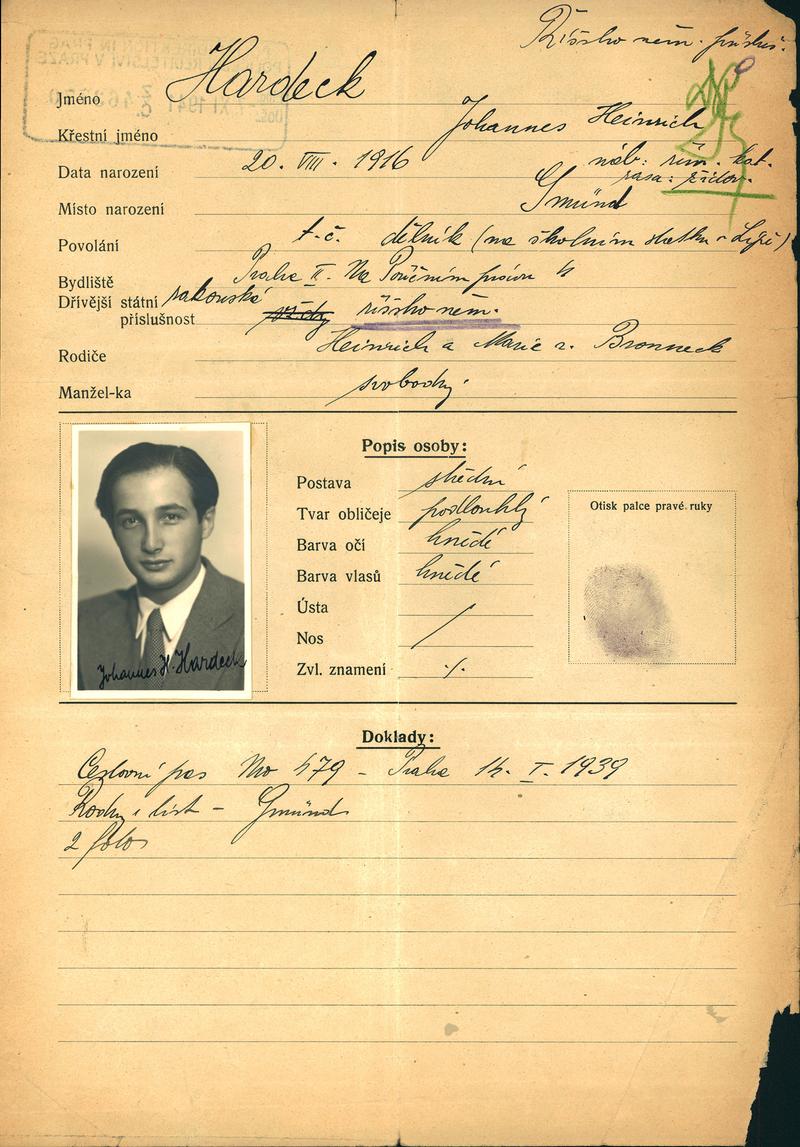 Říšsko něm. přísluš.
Jméno Hardeck
Křestní jméno Johannes Heinrich
Data narození 20. VIII. 1916 náb: řím. kat.
rasa: židov.
Místo narození Gmünd
Povolání t.č. dělník (na školním statku v
Bydliště Praha II. Na Poříčním
Dřívější státní příslušnost rakouská vždy říšsko něm.
Rodiče Heinrich a Marie r. Bronneck
Manžel-ka svobodný
Popis osoby:
Postava střední
Tvar obličeje podlouhlý
Barva očí hnědé
Barva vlasů hnědé
Ústa /
Nos
Zvl. znamení ./.
Otisk palce pravé ruky
Johannes H. Hardeck
Doklady:
Cestovní pas No 479 - Praha 14. I. 1939
Rodný list - Gmünd
2 foto